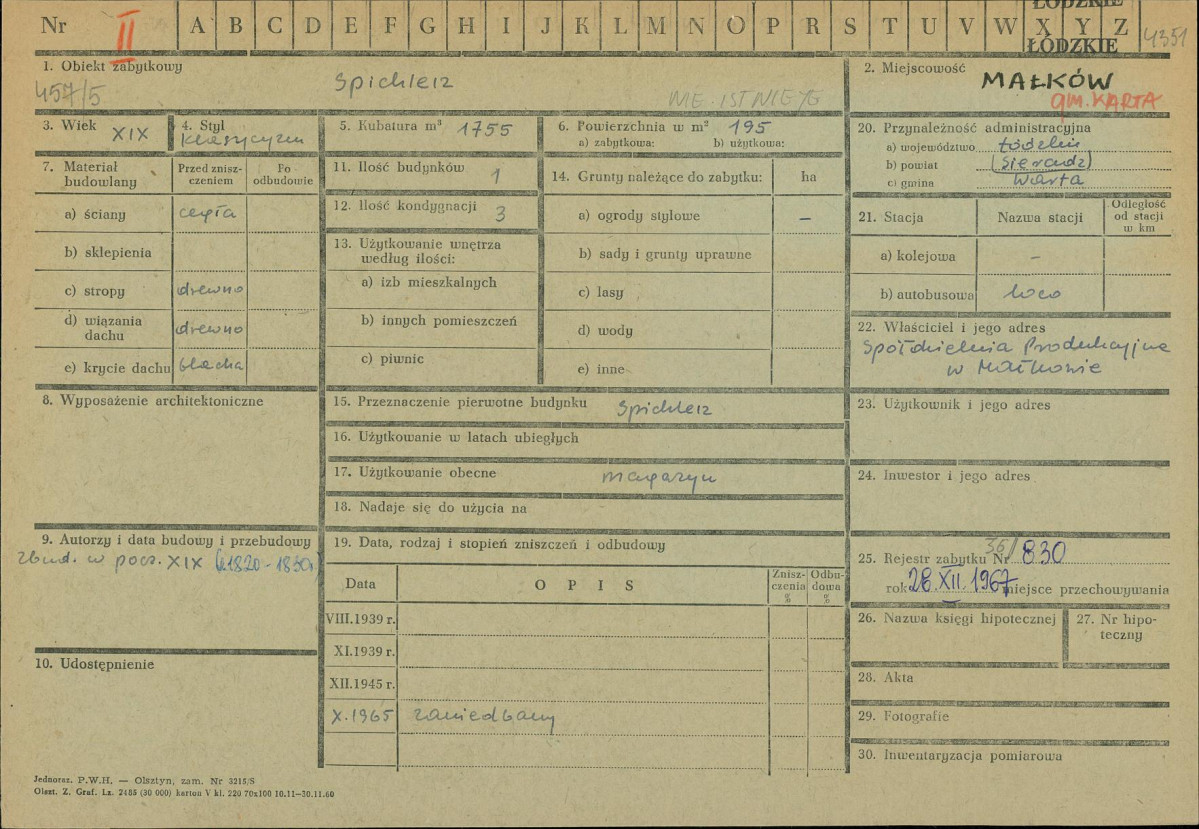 Nr II A B C D E F G H I J K L M N O P R S T U V W X Y Z
ŁÓDZKIE
ŁÓDZKIE
4351
1. Obiekt zabytkowy
457/5
Spichlerz
NIE ISTNIEJE
2. Miejscowość
MAŁKÓW
gm. WARTA
3. Wiek XIX
4. Styl
klasycyzm
5. Kubatura m³ 1755
6. Powierzchnia w m² 195
a) zabytkowa: b) użytkowa:
7. Materiał budowlany
Przed znisz-
czeniem
Po
odbudowie
a) ściany cegła
b) sklepienia
c) stropy drewno
d) wiązania
dachu drewno
e) krycie dachu blacha
8. Wyposażenie architektoniczne
9. Autorzy i data budowy i przebudowy
zbud. w pocz. XIX (1820-1830)
10. Udostępnienie
11. Ilość budynków 1
12. Ilość kondygnacji 3
13. Użytkowanie wnętrza
według ilości:
a) izb mieszkalnych
b) innych pomieszczeń
c) piwnic
14. Grunty należące do zabytku: ha
a) ogrody stylowe –
b) sady i grunty uprawne
c) lasy
d) wody
e) inne
15. Przeznaczenie pierwotne budynku spichlerz
16. Użytkowanie w latach ubiegłych
17. Użytkowanie obecne magazyn
18. Nadaje się do użycia na
19. Data, rodzaj i stopień zniszczeń i odbudowy
Data OPIS
Znisz-
czenia
%
Odbu-
dowa
%
VIII.1939 r.
XI.1939 r.
XII.1945 r.
X.1965 zaniedbany
20. Przynależność administracyjna
a) województwo łódzkie
b) powiat (Sieradz)
c) gmina Warta
21. Stacja Nazwa stacji
Odległość
od stacji
w km
a) kolejowa –
b) autobusowa loco
22. Właściciel i jego adres
Spółdzielnia Produkcyjna
w Małkowie
23. Użytkownik i jego adres
24. Inwestor i jego adres
25. Rejestr zabytku Nr 36/830
rok 28.XII.1967 miejsce przechowywania
26. Nazwa księgi hipotecznej
27. Nr hipo-
teczny
28. Akta
29. Fotografie
30. Inwentaryzacja pomiarowa
Jednoraz. P.W.H. — Olsztyn, zam. Nr 3215/S
Olszt. Z. Graf. Lz. 2485 (30 000) karton V kl. 220 70x100 10.11—30.11.60